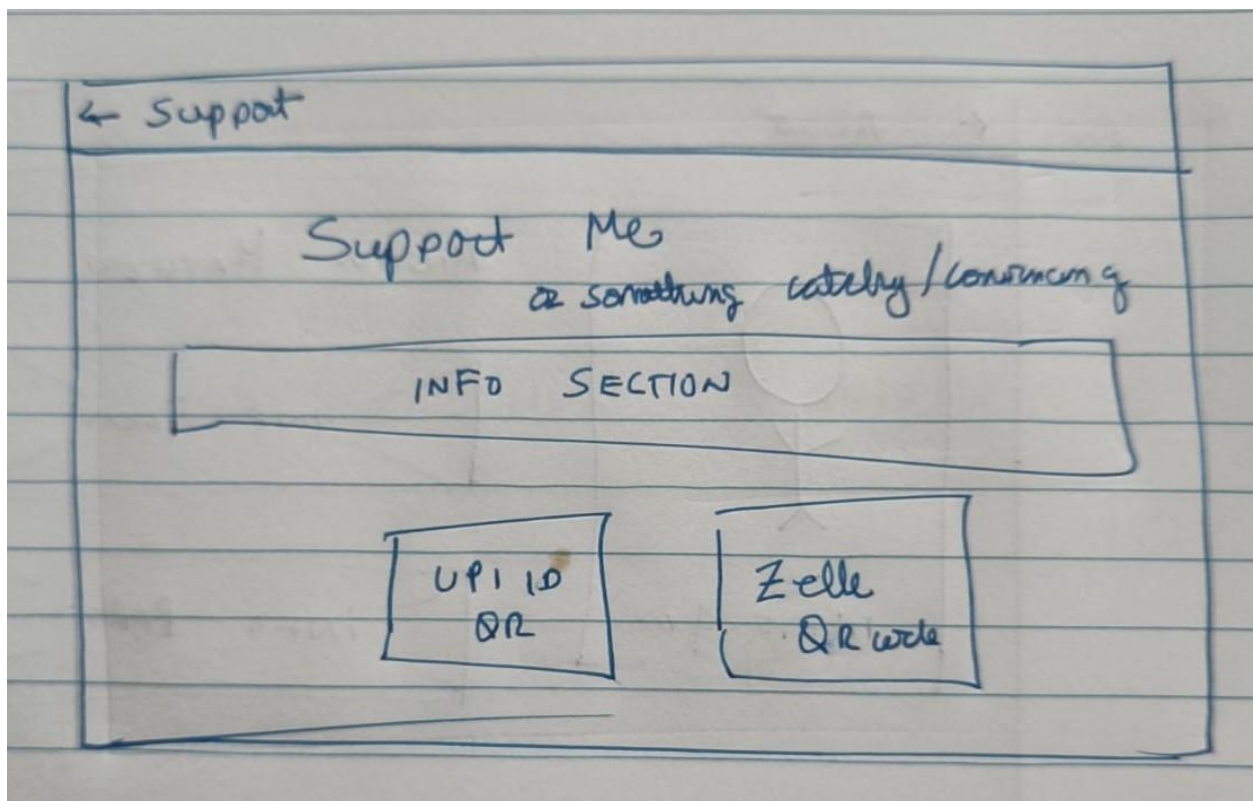 ← Support
Support Me
or something catchy/convincing
INFO SECTION
UPI ID
QR
Zelle
QR code